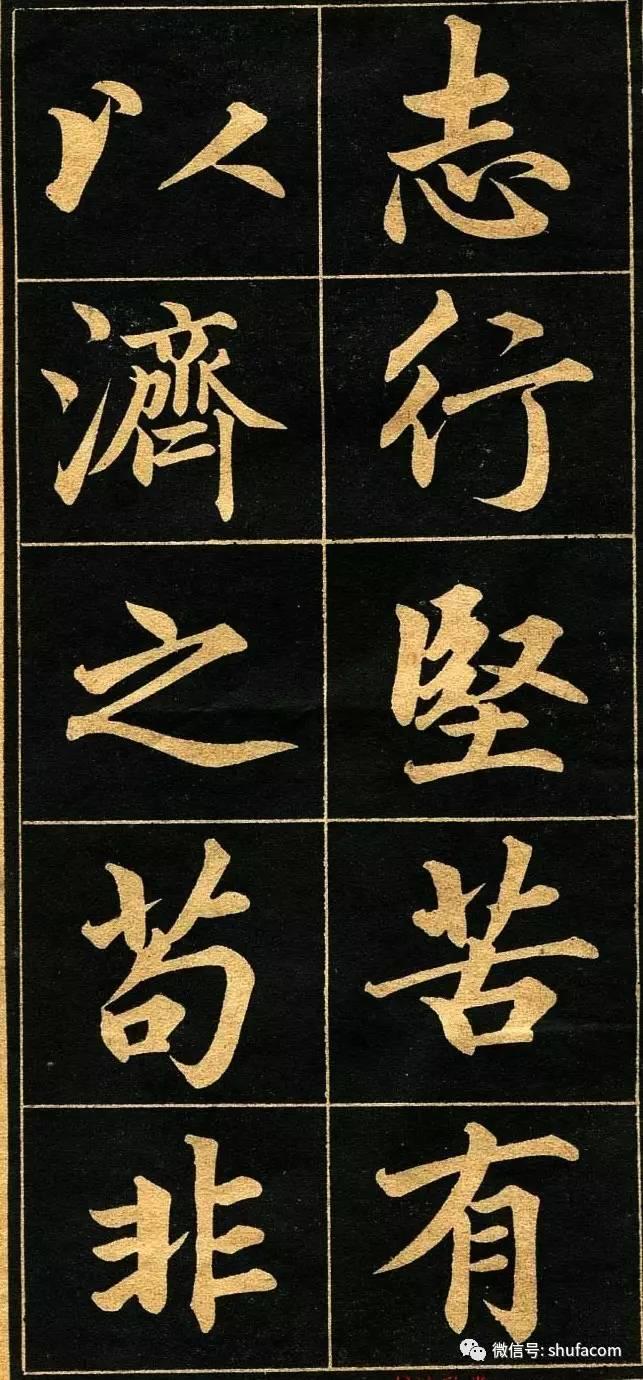 志行堅苦有
以濟之苟非
微信号: shufacom